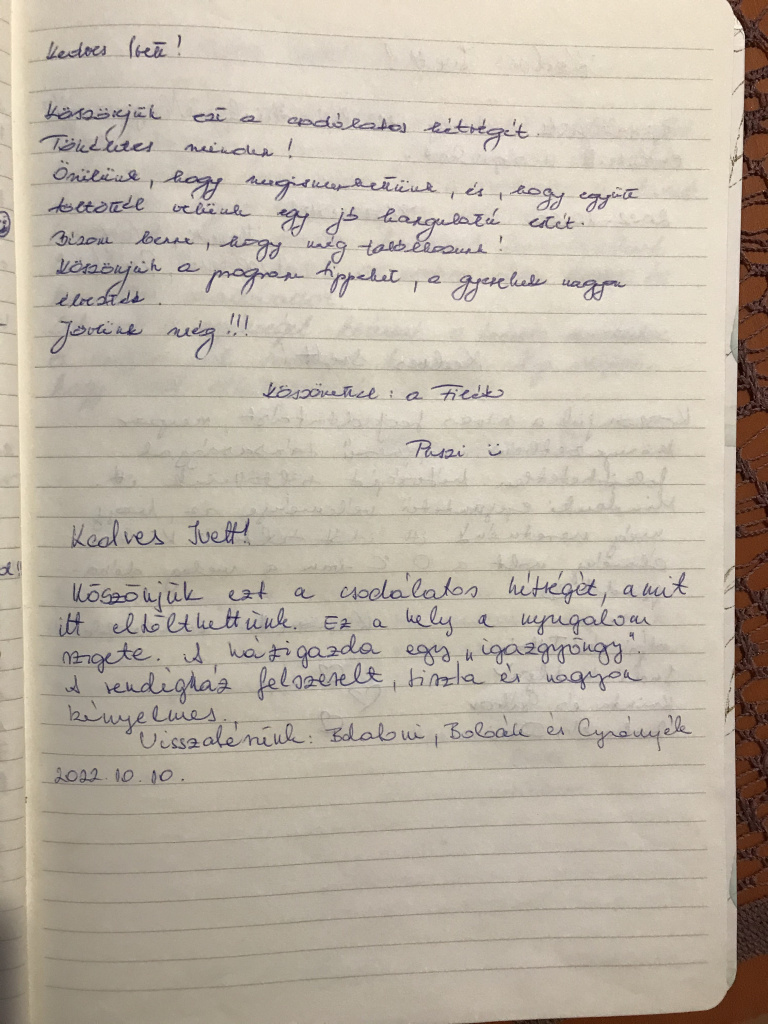 Kedves Ivett!
Köszönjük ezt a csodálatos hétvégét.
Tökéletes minden!
Örülünk, hogy megismerhettünk, és, hogy együtt
töltöttél velünk egy jó hangulatú estét.
Bízom benne, hogy még találkozunk!
Köszönjük a program tippeket, a gyerekek nagyon
élvezték.
Jövünk még!!!
Köszönettel: a Fiték
Puszi ü
Kedves Ivett!
Köszönjük ezt a csodálatos hétvégét, amit
itt eltölthettünk. Ez a hely a nyugalom
szigete. A házigazda egy „igazgyöngy".
A vendégház felszerelt, tiszta és nagyon
kényelmes.
Visszatérünk: és
2022.10.10.